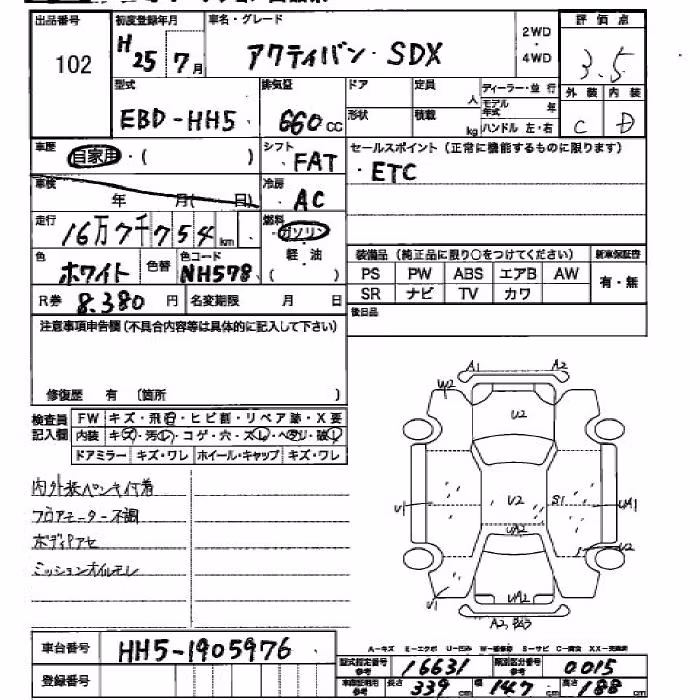 出品番号 初度登録年月 車名・グレード 2WD 評価点
102 H25 7月 アクティバン・SDX 4WD 3.5
型式 排気量 ドア 定員 ディーラー・並行 外装 内装
EBD-HH5 660cc 形状 人 モデル年式 年 C D
積載 kg ハンドル 左・右
車歴 自家用・( ) シフト FAT セールスポイント(正常に機能するものに限ります)
車検 年 月( 日) 冷房 AC ・ETC
走行 16万7千754km 燃料 ガソリン
軽・油
色 ホワイト 色替 色コード NH578 ( )
装備品(純正品に限り○をつけてください) 新車保証書
PS PW ABS エアB AW 有・無
SR ナビ TV カワ
R券 8.380円 名変期限 月 日
後日品
注意事項申告欄(不具合内容等は具体的に記入して下さい)
修復歴 有 (箇所 )
検査員記入欄 FW キズ・飛石・ヒビ割・リペア跡・X要
内装 キズ・汚れ・コゲ・穴・スレ・ヘタリ・破れ
ドアミラー キズ・ワレ ホイール・キャップ キズ・ワレ
内外装ペンキ付着
フロアモーター不調
ボディアセ
ミッションオイルモレ
A1 A2
W2
U2
U1 V2 S1 UA1
UA2
U2
U1 UA2
A2
車台番号 HH5-1905976
登録番号
A-キズ E-エクボ U-凹み W-補修跡 S-サビ C-腐食 XX-交換済
型式指定番号 参考 16631 類別区分番号 参考 0015
車庫証明用 参考 長さ 339cm 幅 147cm 高さ 188cm